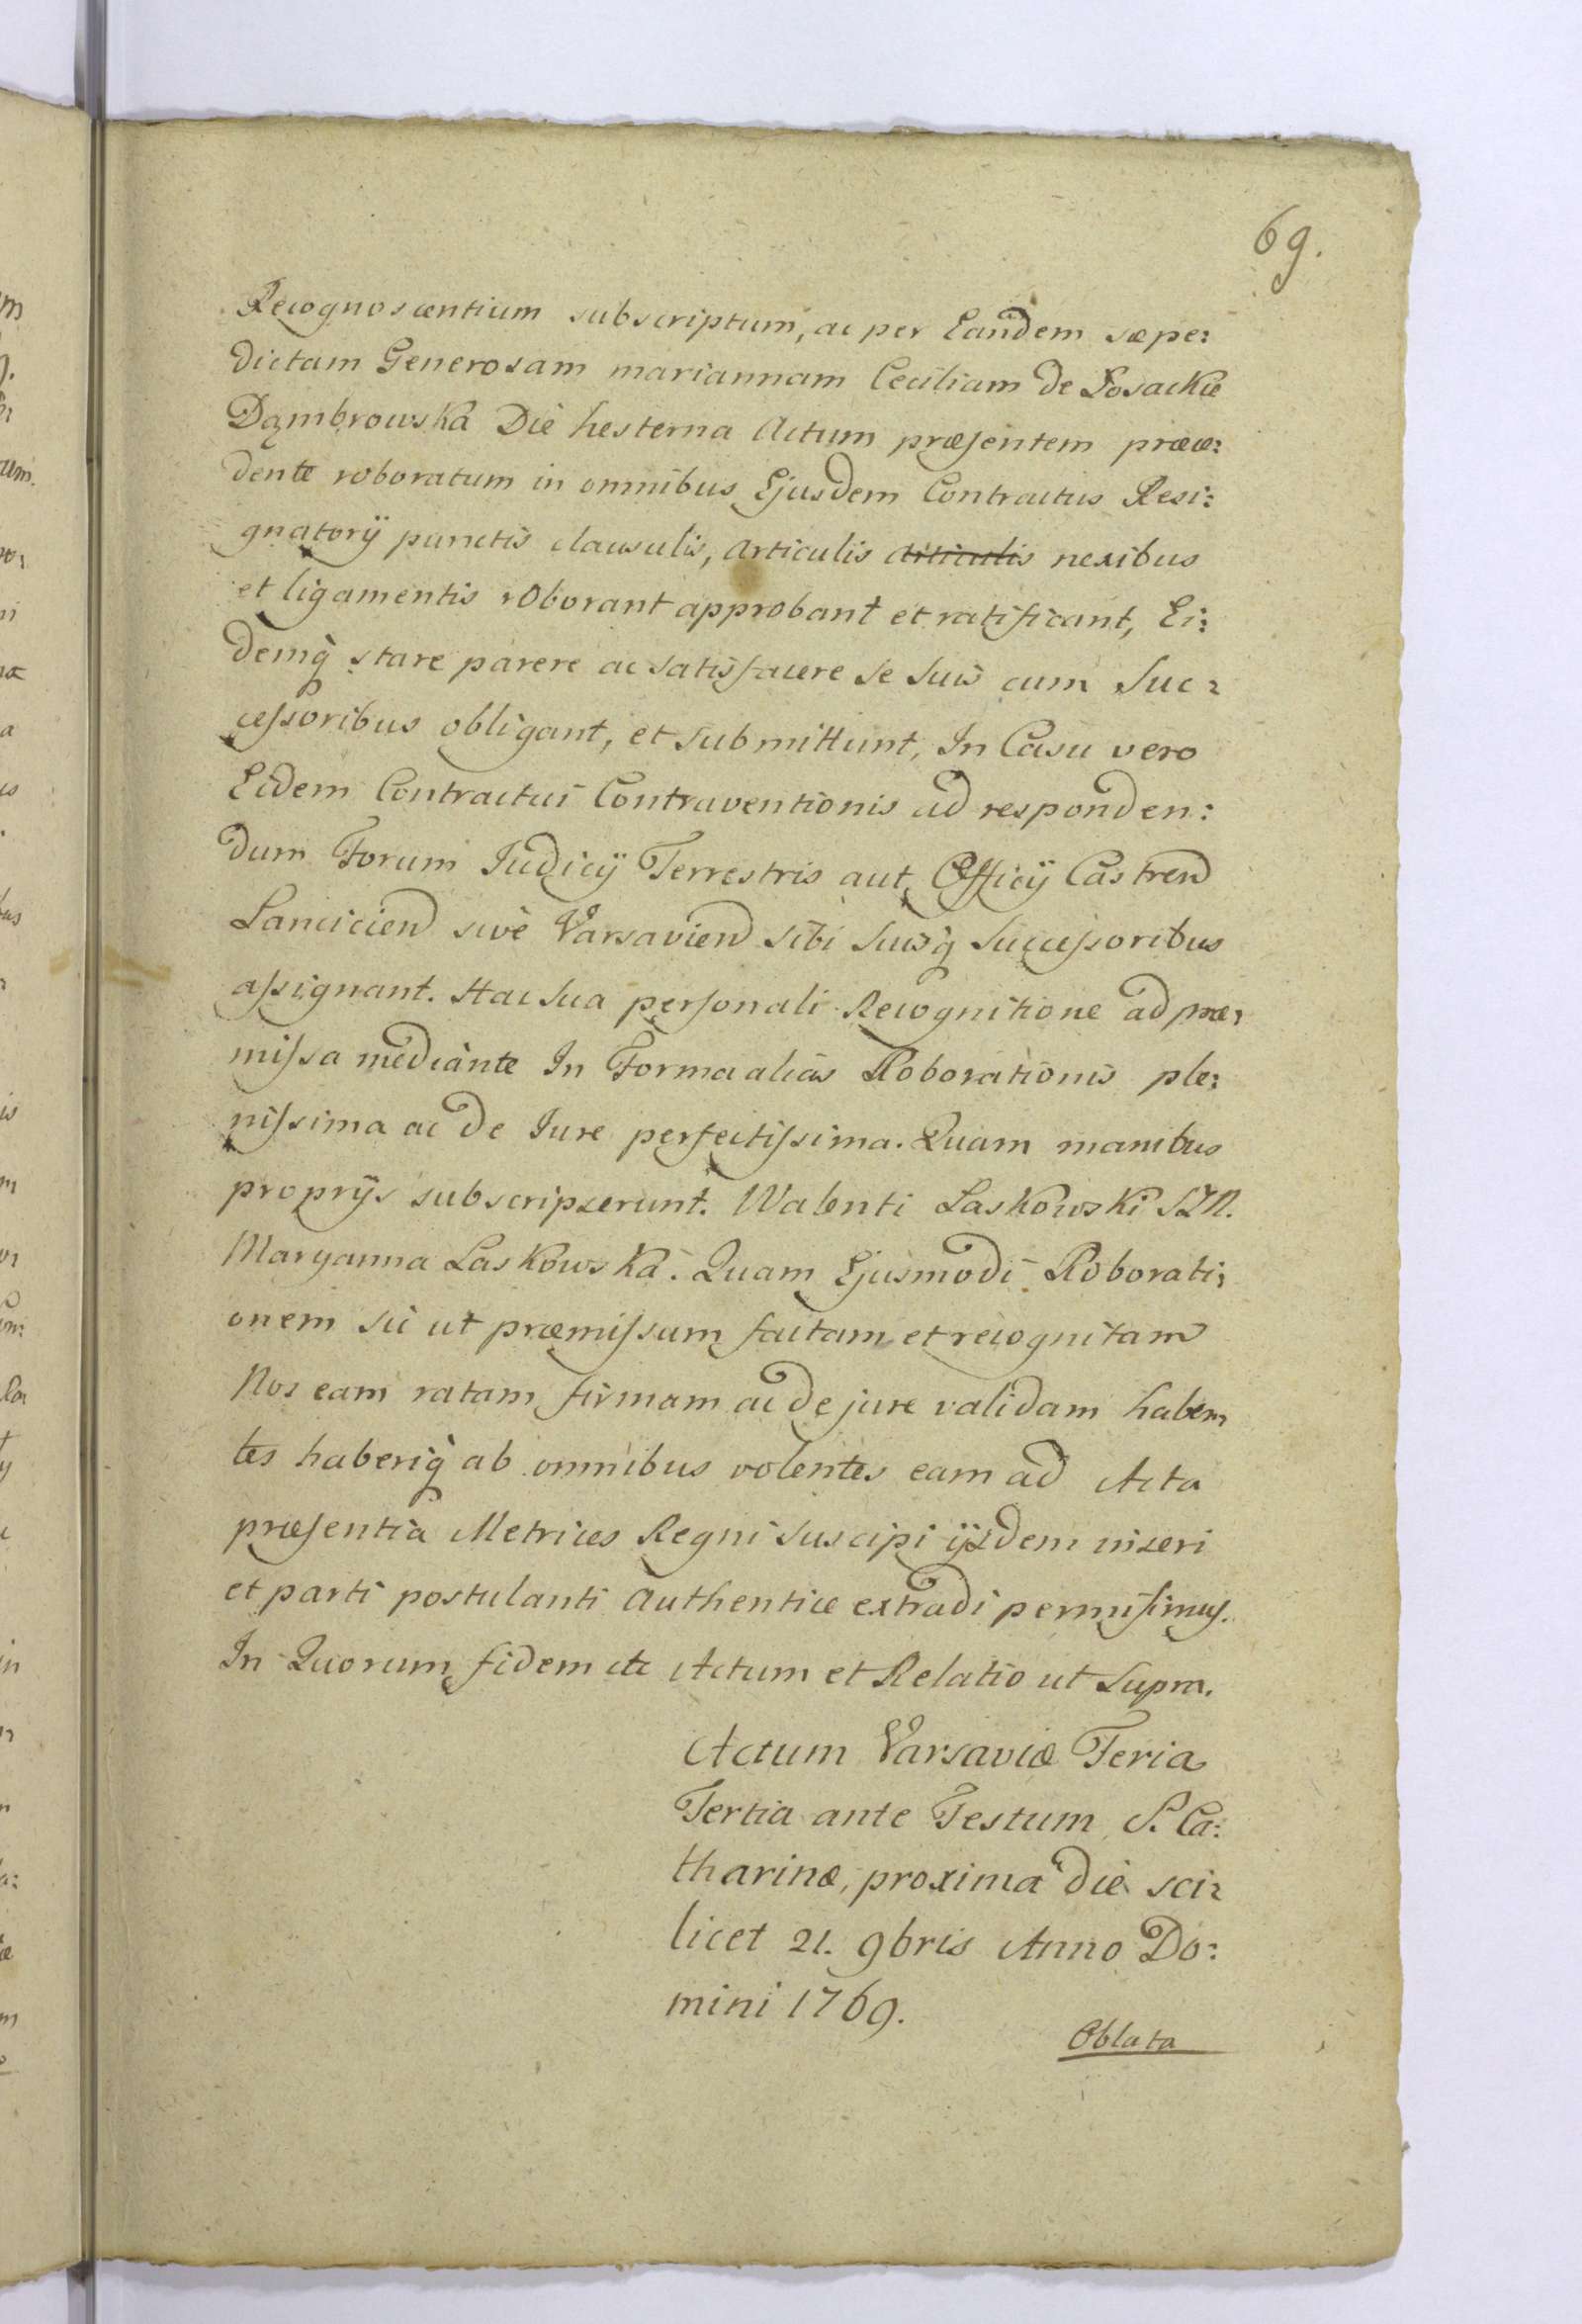 69.
Recognoscentium subscriptum, ac per Eandem sæpe:
dictam Generosam mariannam Ceciliam de Sosackie
Dąmbrowska Die hesterna Actum præsentem præce:
dente roboratum in omnibus Ejusdem Contractus Resi:
gnatorij punctis clausulis, articulis articulis nexibus
et ligamentis roborant approbant et ratificant, Ei:
demq̀ stare parere ac satisfacere se suis cum Suc:
cessoribus obligant, et submittunt, In Casu vero
Eidem Contractui Contraventionis ad responden:
dum Forum Judicij Terrestris aut Officij Castren
Lancicien sivè Varsavien sibi suisq̀ Successoribus
assignant. Hac sua personali Recognitione ad præ:
missa mediante In Forma alias Roborationis ple:
nissima ac de Jure perfectissima. Quam manibus
proprijs subscripserunt. Walenti Laskowski SZN.
Maryanna Laskowska. Quam Ejusmodi Roborati:
onem sic ut præmissum factam et recognitam
Nos eam ratam firmam ac de jure validam haben:
tes haberiq̀ ab omnibus volentes eam ad Acta
præsentia Metrices Regni suscipi ijsdem inseri
et parti postulanti authentice extradi permisimus.
In Quorum fidem etc Actum et Relatio ut Supra.
Actum Varsaviæ Feria
Tertia ante Festum S. Ca:
tharinæ, proxima die sci:
licet 21. 9bris Anno Do:
mini 1769.
Oblata